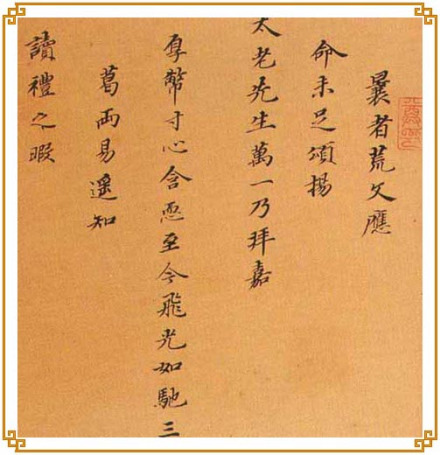 曩者荒文應
命未足頌揚
太老先生萬一乃拜嘉
厚幣寸心含恧至今飛光如馳三
葛兩易遥知
讀禮之暇